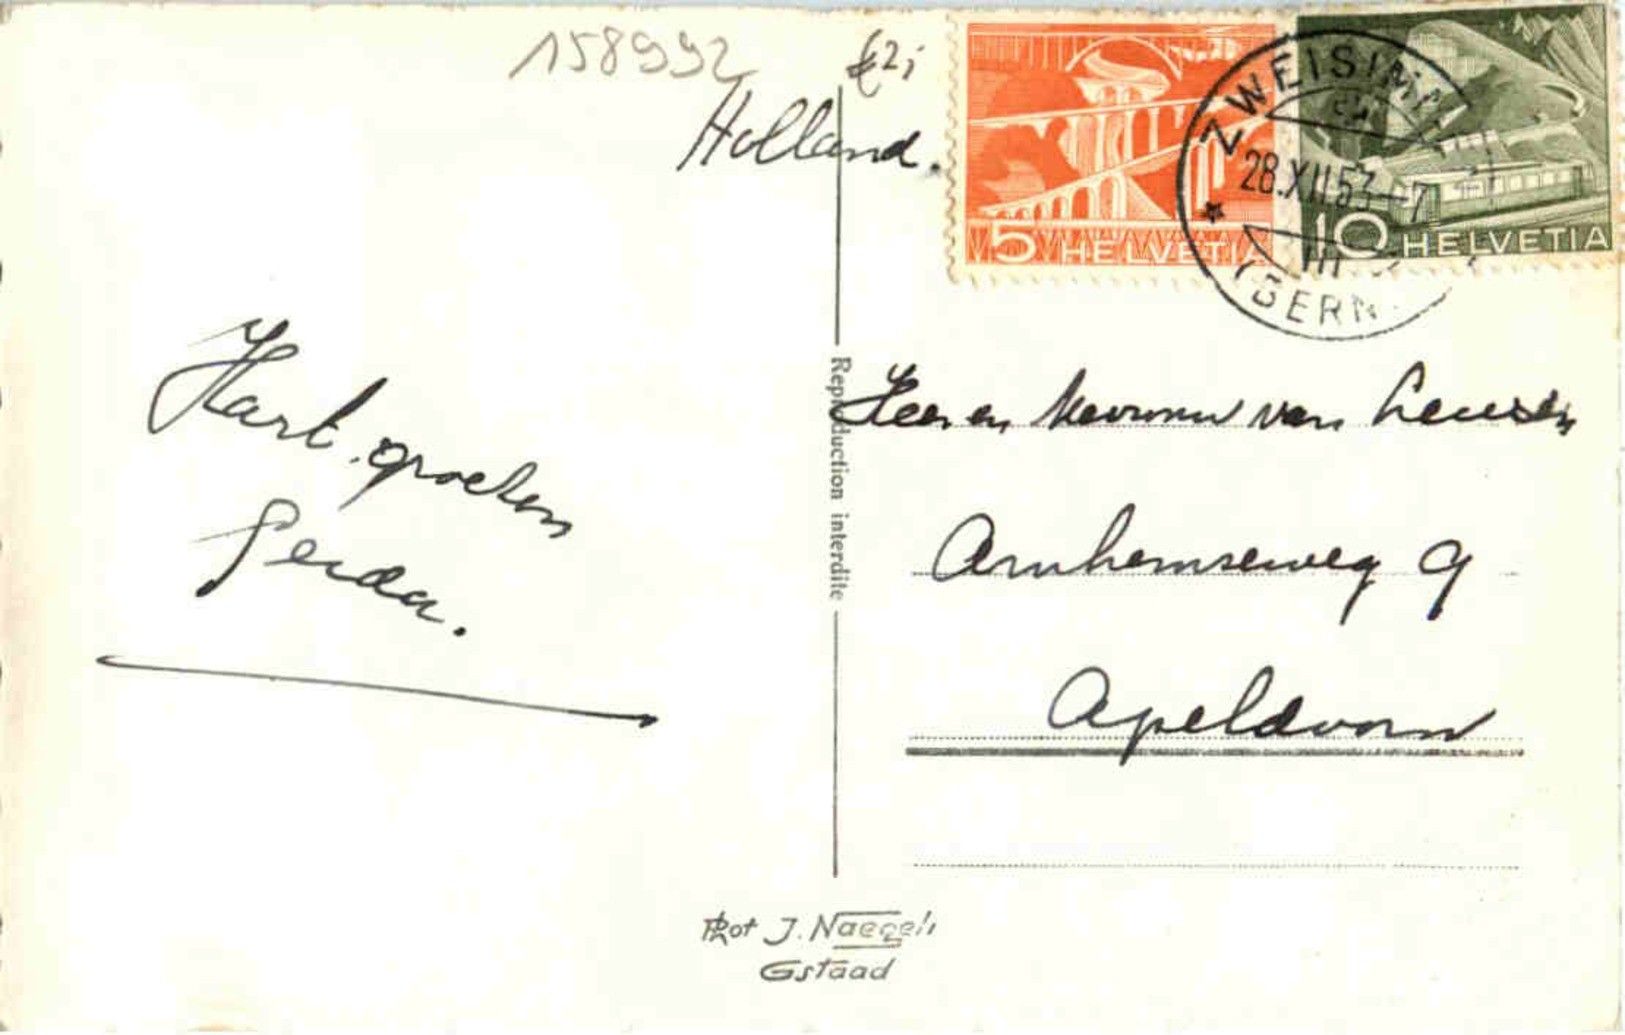 158992
€2,
Holland.
5 HELVETIA
10 HELVETIA
ZWEISIMMEN
28.XII.53-7
(BERN)
Hart. groeten
Gerda.
Heer en Mevrouw van Leusen
Arnhemseweg 9
Apeldoorn
Reproduction interdite
Phot J. Naegeli
Gstaad